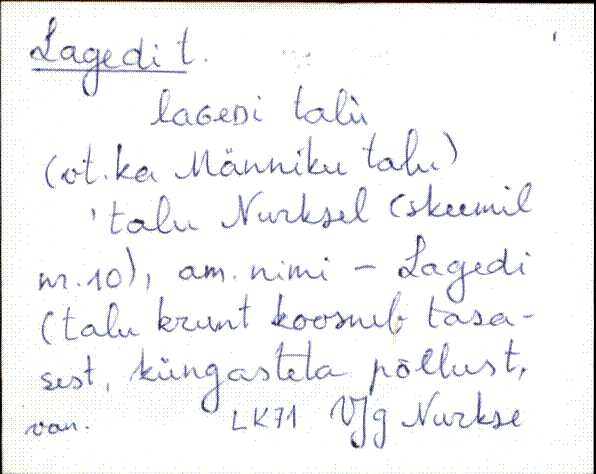 Lagedi t.
laGEDi talù
(vt. ka Männiku talu)
'talu Nurksel (skeemil
nr. 10), am. nimi - Lagedi
(talu krunt koosneb tasa-
sest, küngasteta põllust,
van. LK71 VJg Nurkse